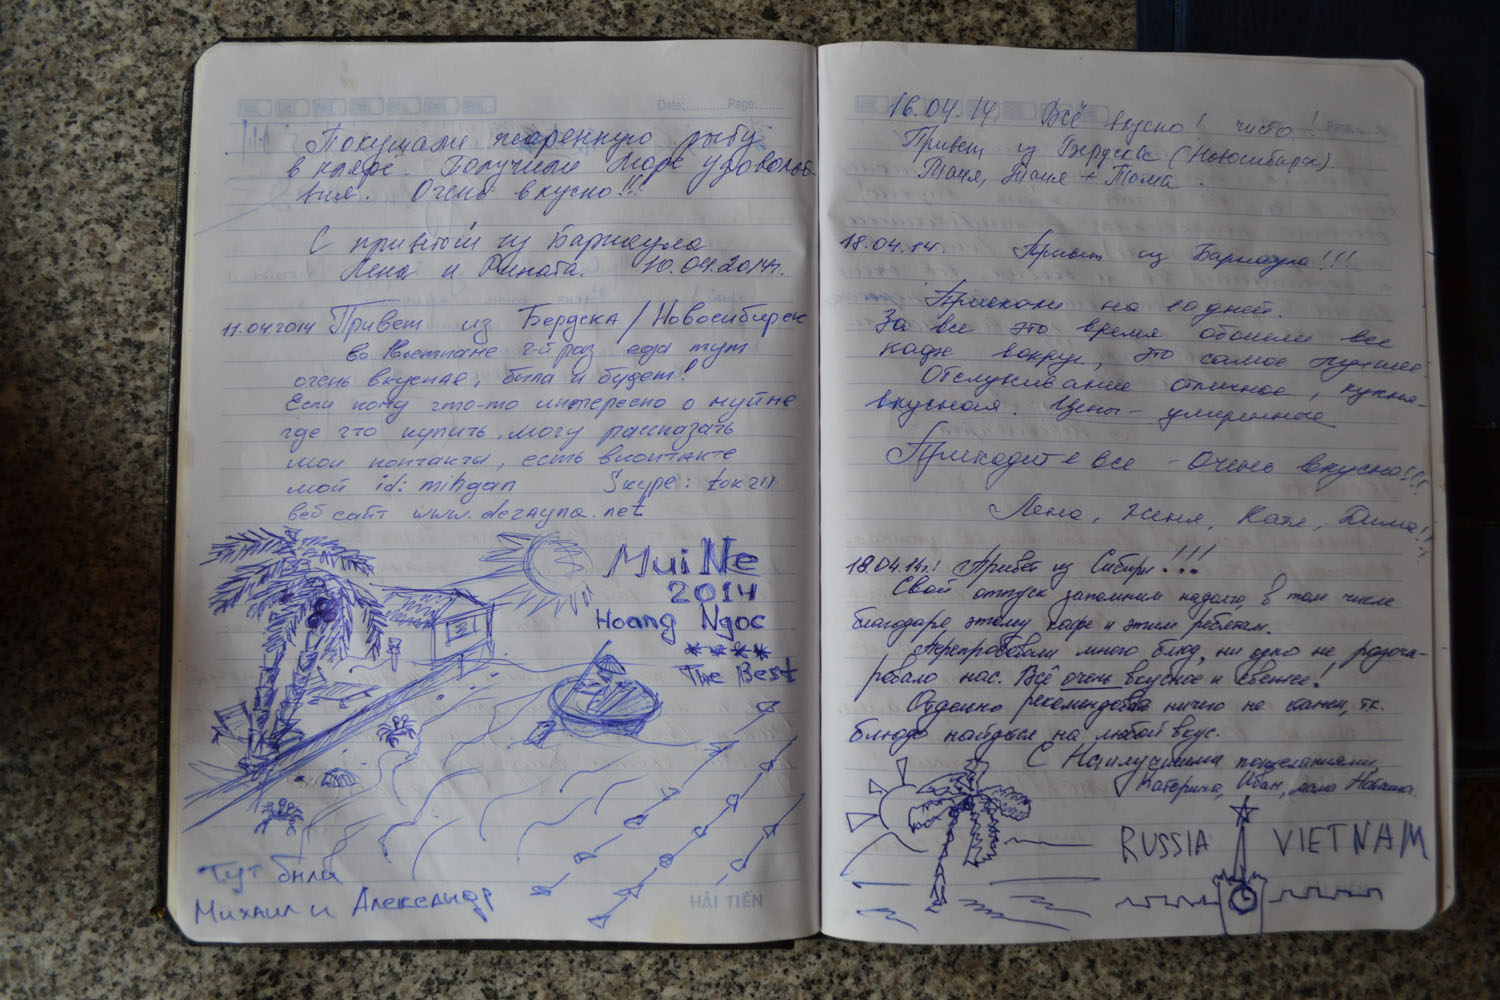 Date: Page:
Покушали жаренную рыбу
в кляре. Получили море удовольст-
вия. Очень вкусно!!!
С приветом из Барнаула
Лена и Рината. 10.04.2014г.
11.04.2014 Привет из Бердска/Новосибирск
во Вьетнаме 2-й раз еда тут
очень вкусная, была и будет!
Если кому что-то интересно о муйне
где что купить, могу рассказать
мои контакты, есть вконтакте
мой id: mihgan Skype:
веб сайт www.dezayna.net
Mui Ne
2014
Hoang Ngoc
****
The Best
Тут были
Михаил и Александр
HẢI TIẾN
16.04.14 Всё вкусно! чисто!
Привет из Бердска (Новосибирск)
Таня, Таня + Тома.
18.04.14г. Привет из Барнаула!!!
Приехали на 10 дней.
За все это время обошли все
кафе вокруг, это самое лучшее.
Обслуживание отличное, кухня-
вкусная. Цены- умеренные
Приходите все - Очень вкусно!!!
Лена, Женя, Катя, Дима!!
18.04.14г.: Привет из Сибири!!!
Свой отпуск запомним надолго, в том числе
благодаря этому кафе и этим ребятам.
Перепробовали много блюд, ни одно не разоча-
ровало нас. Всё очень вкусное и свежее!
Отдельно рекомендовать ничего не станем, т.к.
блюдо найдется на любой вкус.
С Наилучшими пожеланиями,
Катерина, Иван, мама Наташа.
RUSSIA VIETNAM